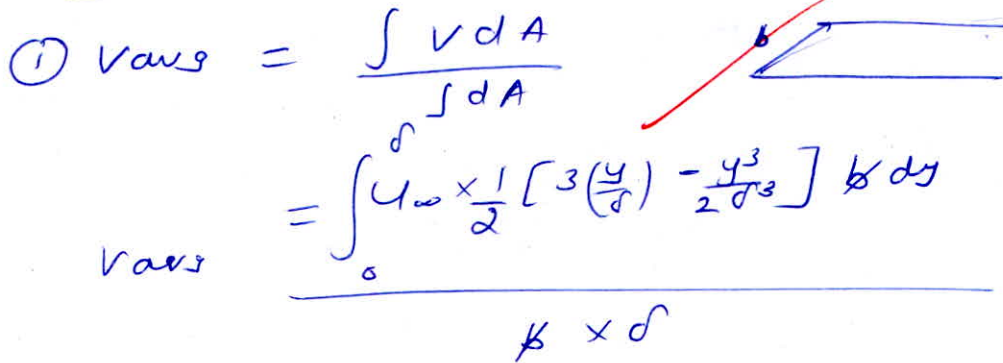 ① Vavg = ∫ V dA / ∫ dA
b
Vavg = ∫₀^δ U∞ × 1/2 [ 3(y/δ) - y³/2δ³ ] b dy / b × δ